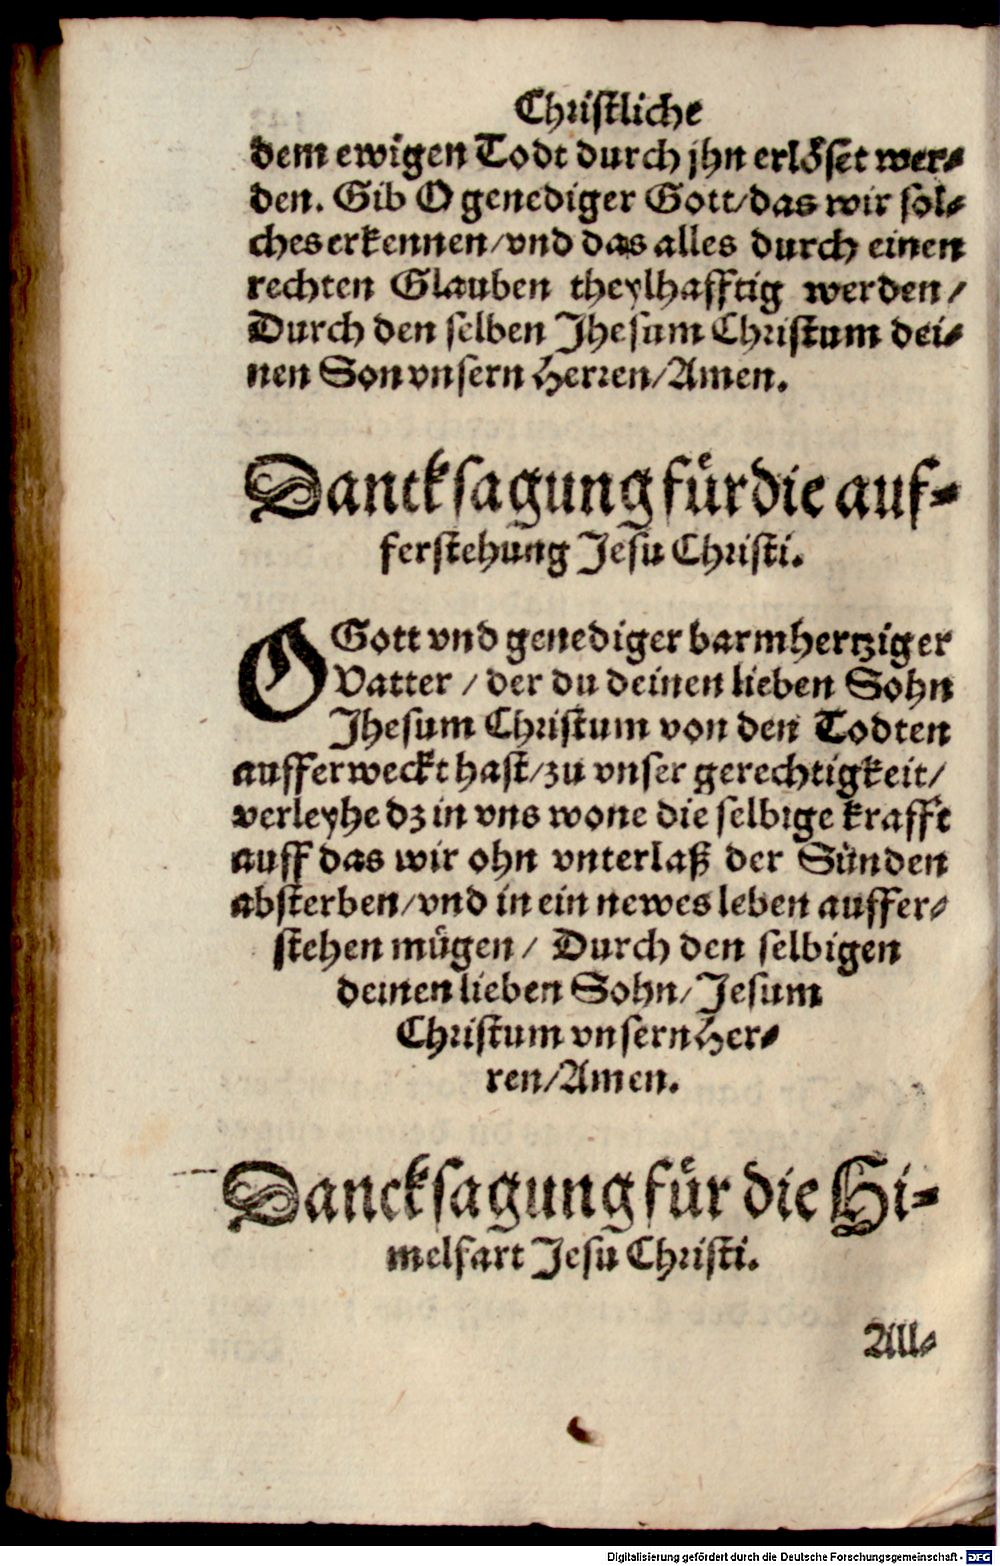 Christliche
dem ewigen Todt durch jhn erlöset wer-
den. Gib O genediger Gott/das wir sol-
ches erkennen/vnd das alles durch einen
rechten Glauben theylhafftig werden/
Durch den selben Jhesum Christum dei-
nen Son vnsern Herren/Amen.
Dancksagung für die auf-
ferstehung Jesu Christi.
O Gott vnd genediger barmhertziger
Vatter / der du deinen lieben Sohn
Jhesum Christum von den Todten
aufferweckt hast/zu vnser gerechtigkeit/
verleyhe dz in vns wone die selbige krafft
auff das wir ohn vnterlaß der Sünden
absterben/vnd in ein newes leben auffer-
stehen mügen / Durch den selbigen
deinen lieben Sohn/Jesum
Christum vnsern Her-
ren/Amen.
Dancksagung für die Hi-
melfart Jesu Christi.
All-
Digitalisierung gefördert durch die Deutsche Forschungsgemeinschaft - DFG